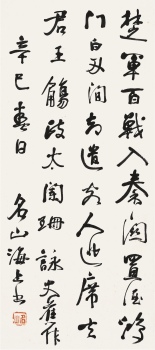 楚軍百戰入秦關置酒鴻
門白刃間遣人席去
君王觴政太闌珊 詠史舊作
辛巳春日 名山海上書